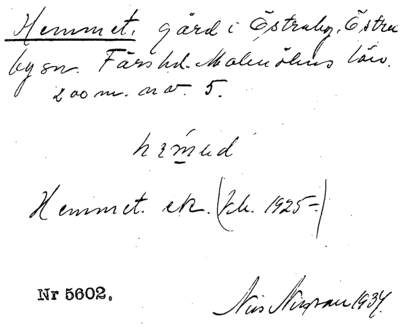 Hemmet, gård i Östraby, Östra
by sn. Färs hd. Malmöhus län.
200 m. nv. 5.
hemed
Hemmet. ek. (Jb. 1925-)
Nr 5602.
Nils 1934.